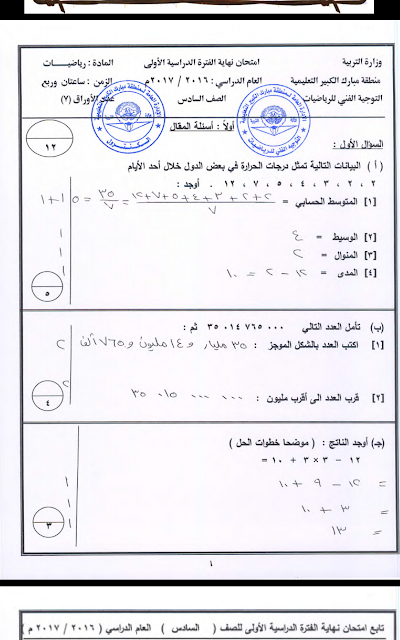 وزارة التربية
منطقة مبارك الكبير التعليمية
التوجيه الفني للرياضيات
امتحان نهاية الفترة الدراسية الأولى
العام الدراسي : ٢٠١٦ / ٢٠١٧م
الصف السادس
المادة : رياضيــات
الزمن : ساعتان وربع
عدد الأوراق (٧)
أولاً : أسئلة المقال
السؤال الأول :
١٢
( أ ) البيانات التالية تمثل درجات الحرارة في بعض الدول خلال أحد الأيام
٢ ، ٢ ، ٣ ، ٤ ، ٥ ، ٧ ، ١٢ . أوجد :
[١] المتوسط الحسابي = ٢+٢+٣+٤+٥+٧+١٢ / ٧ = ٣٥ / ٧ = ٥
١+١
[٢] الوسيط = ٤
١
[٣] المنوال = ٢
١
[٤] المدى = ١٢ - ٢ = ١٠
١
٥
(ب) تأمل العدد التالي ٣٥ ٠١٤ ٧٦٥ ٠٠٠ ثم :
[١] اكتب العدد بالشكل الموجز : ٣٥ مليار و ١٤ مليون و ٧٦٥ ألف
٢
[٢] قرب العدد الى أقرب مليون : ٣٥ ٠١٥ ٠٠٠ ٠٠٠
٢
٤
(جـ) أوجد الناتج : ( موضحا خطوات الحل )
١٢ - ٣ × ٣ + ١٠ =
= ١٢ - ٩ + ١٠
١
= ٣ + ١٠
١
= ١٣
١
٣
١
تابع امتحان نهاية الفترة الدراسية الأولى للصف ( السادس ) العام الدراسي ( ٢٠١٦ / ٢٠١٧ م )